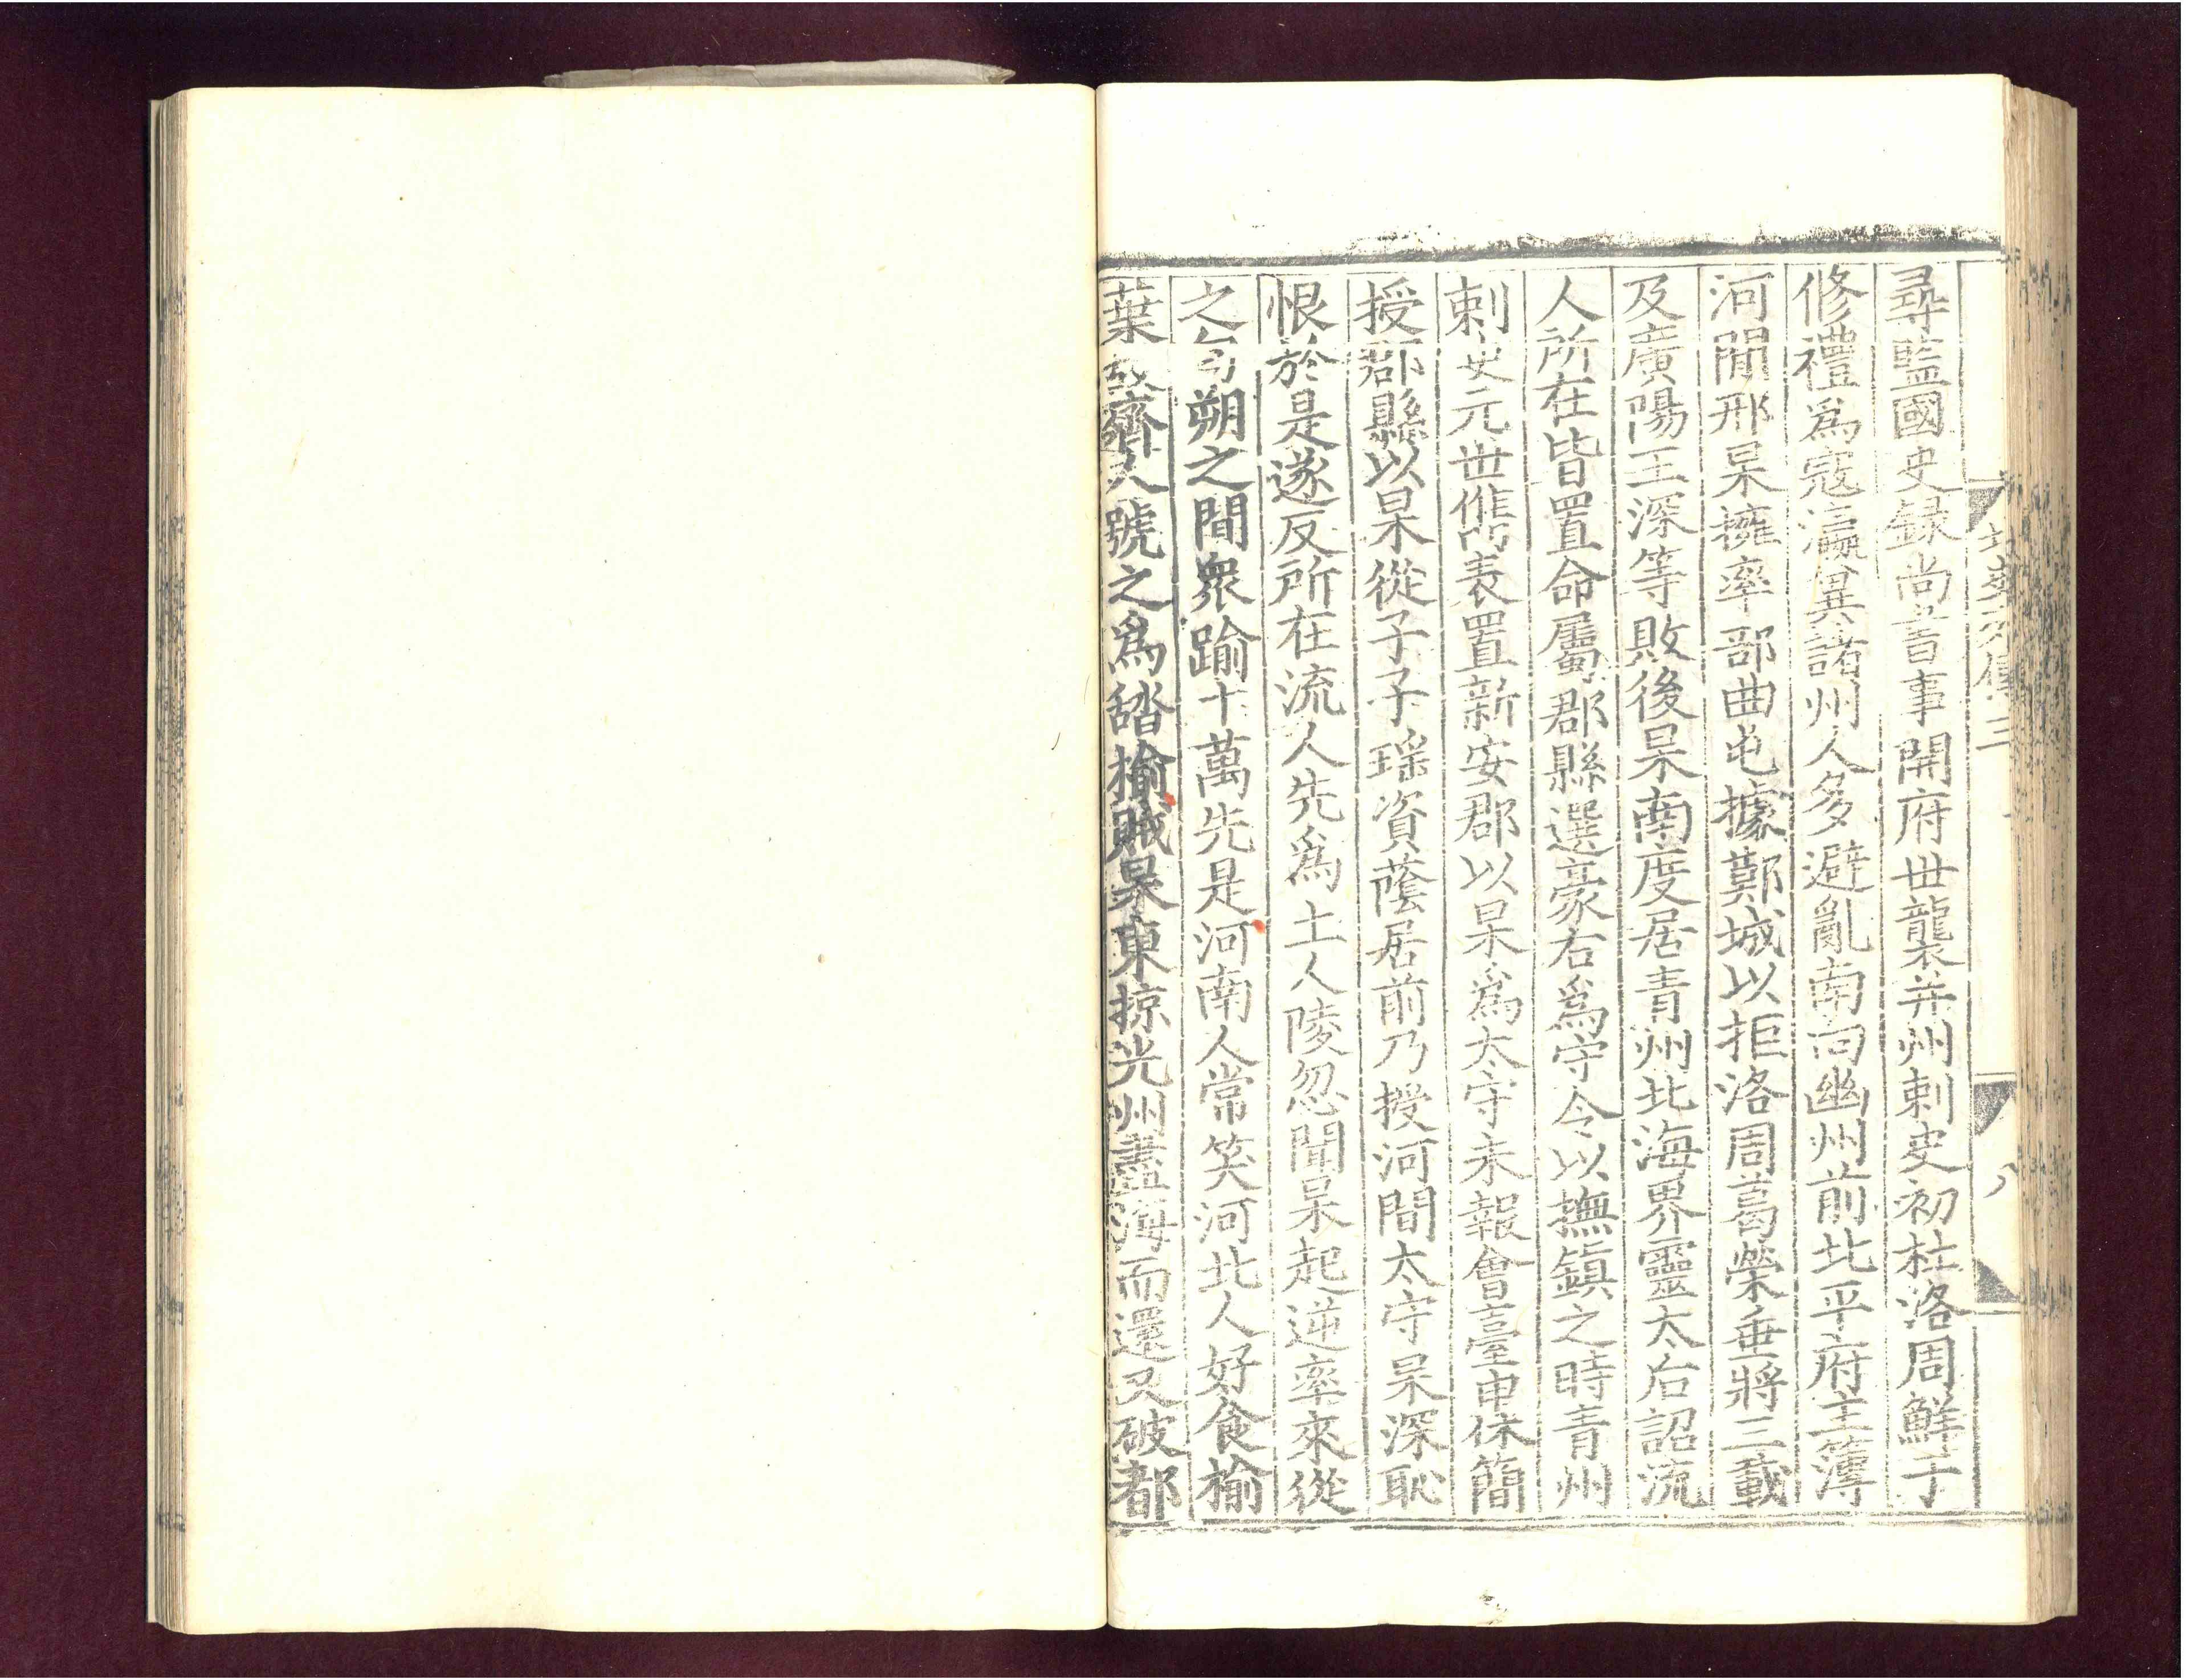 尋監國史録尚書事開府世襲并州刺史初杜洛周鮮于
修禮爲寇瀛冀諸州人多避亂南向幽州前北平府主簿
河間邢杲擁率部曲屯據鄚城以拒洛周葛榮垂將三載
及廣陽王深等敗後杲南度居青州北海界靈太后詔流
人所在皆置命屬郡縣選豪右爲守令以撫鎮之時青州
刺史元世儁表置新安郡以杲爲太守未報會臺申休簡
授郡縣以杲從子子瑶資蔭居前乃授河間太守杲深恥
恨於是遂反所在流人先爲土人陵忽聞杲起逆率來從
之旬朔之間衆踰十萬先是河南人常笑河北人好食榆
葉故齊人號之爲㗖榆賊杲東掠光州盡海而還又破都